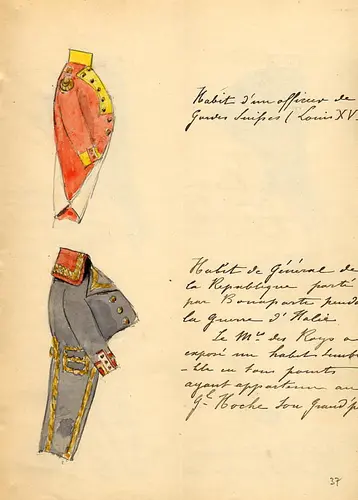 Habit d'un officier de
Gardes Suisses (Louis XV
Habit de Général de
la République porté
par Bonaparte penda
la Guerre d'Italie.
Le Mis des Roys a
exposé un habit sembl
-ble en tous points
ayant appartenu au
Gl Hoche son Grand'p
37